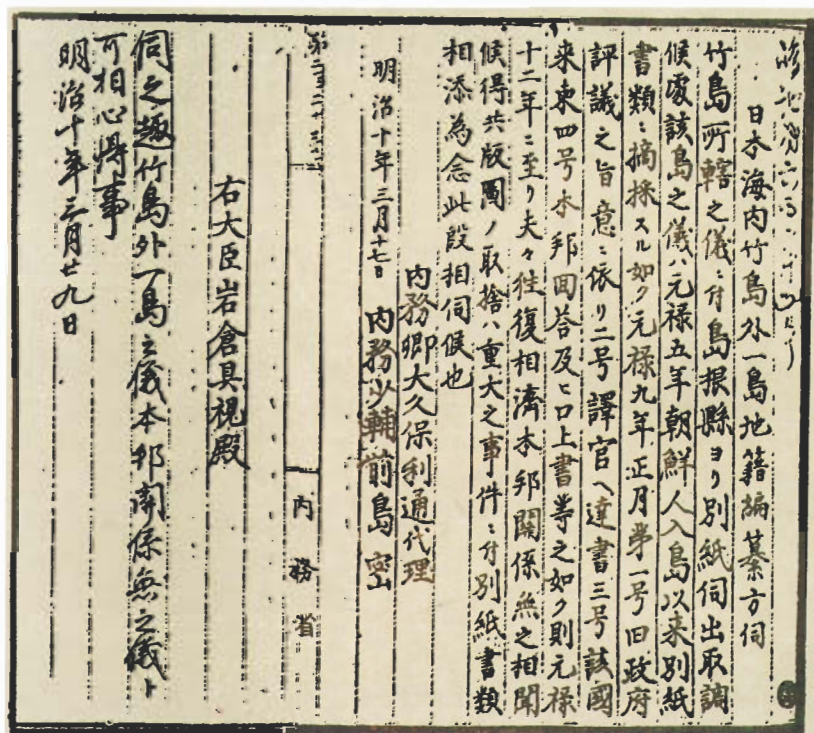 日本海内竹島外一島地籍編纂方伺
竹島所轄之儀ニ付島根縣ヨリ別紙伺出取調
候處該島之儀ハ元禄五年朝鮮人入島以来別紙
書類ニ摘採スル如ク元禄九年正月第一号旧政府
評議之旨意ニ依リ二号譯官ヘ達書三号該國
来柬四号本邦回荅及ヒ口上書等之如ク則元禄
十二年ニ至リ夫々往復相濟本邦關係無之相聞
候得共版圖ノ取捨ハ重大之事件ニ付別紙書類
相添為念此段相伺候也
内務卿大久保利通代理
明治十年三月十七日 内務少輔前島密
内務省
右大臣岩倉具視殿
伺之趣竹島外一島之儀本邦関係無之儀ト
可相心得事
明治十年三月廿九日